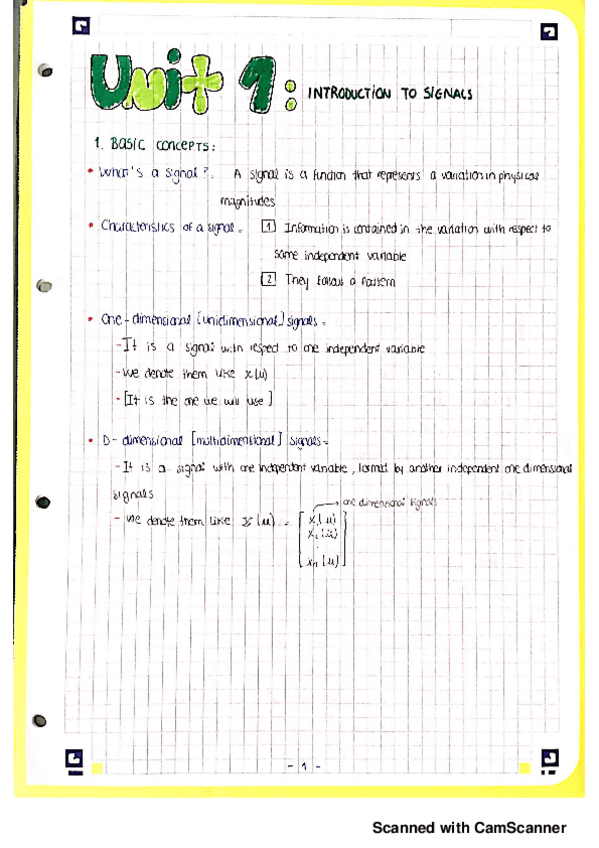 Unit 1: INTRODUCTION TO SIGNALS
1. BASIC CONCEPTS:
• What's a signal?. A signal is a function that represents a variation in physical
magnitudes
• Characteristics of a signal = 1 Information is contained in the variation with respect to
some independent variable
2 They follow a pattern
• One-dimensional [unidimensional] signals =
- It is a signal with respect to one independent variable
- We denote them like x(u)
- [It is the one we will use]
• D-dimensional [multidimensional] signals =
- It is a signal with one independent variable, formed by another independent one dimensional
signals
→ one dimensional signals
- We denote them like x(u) = [x₁(u)
x₂(u)
⋮
xₙ(u)]
- 1 -
Scanned with CamScanner